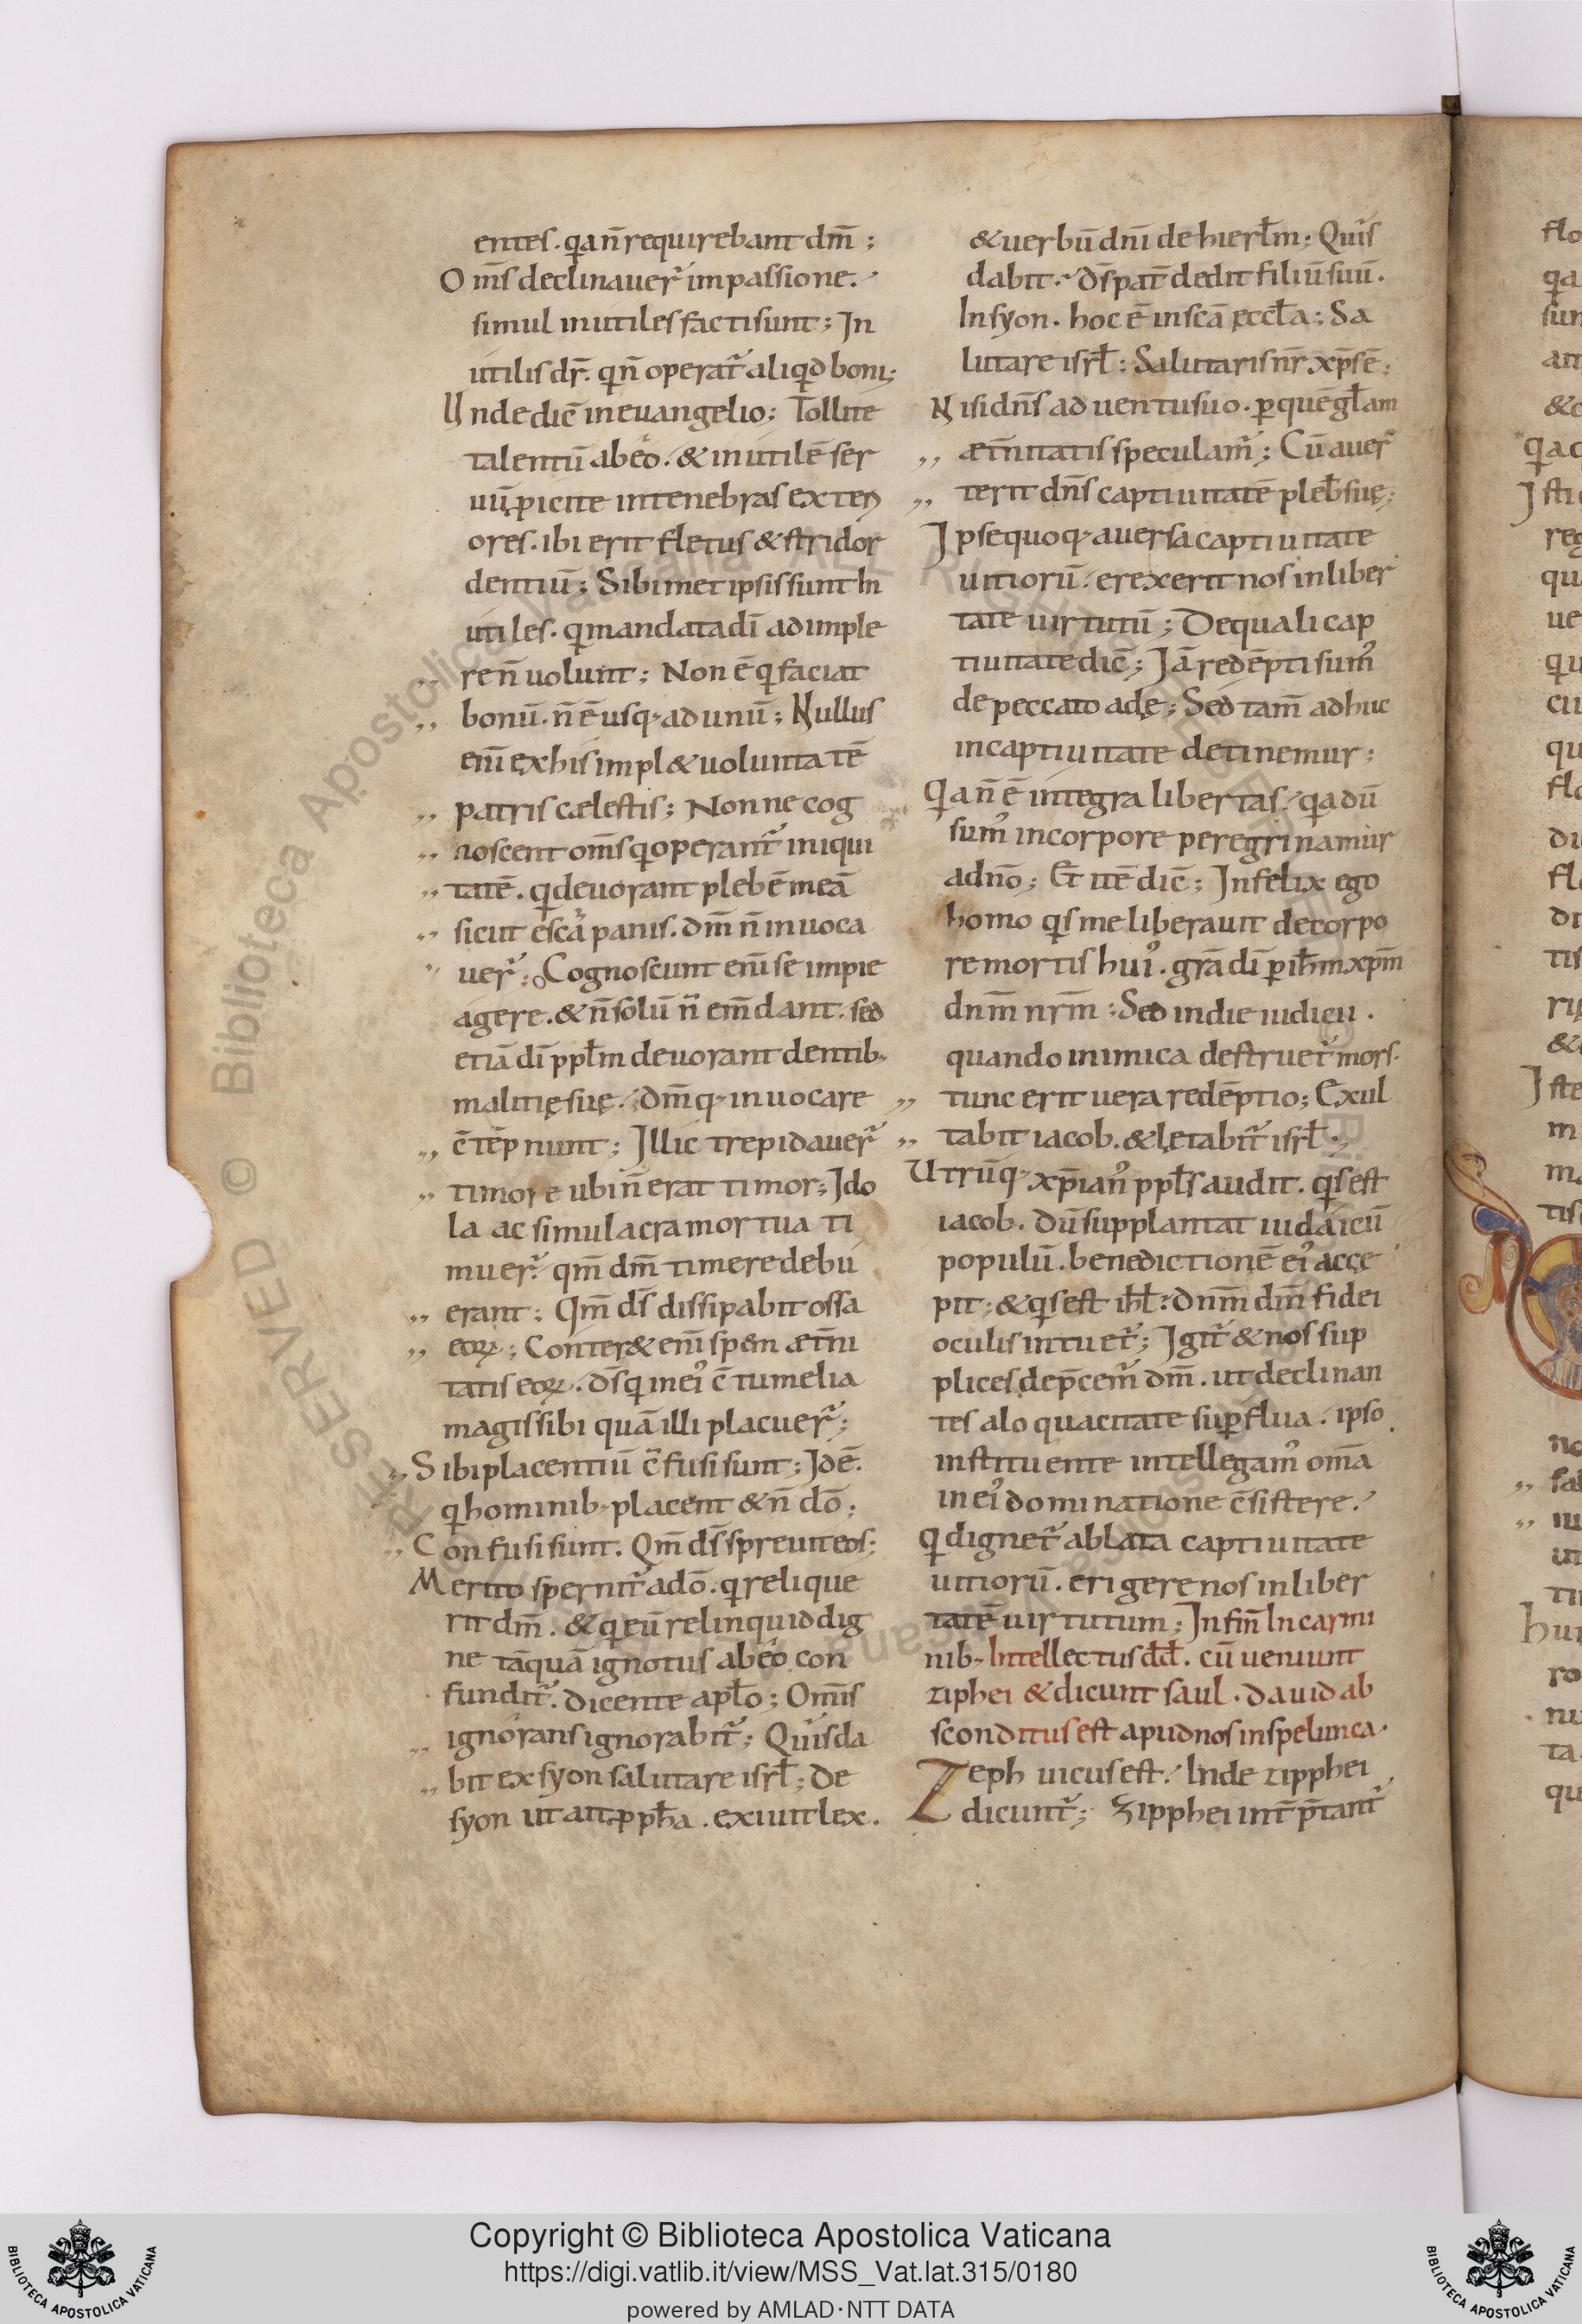 entes. qa n̄ requirebant dm̄;
Om̄s declinauer̄ impassione.
simul inutiles facti sunt; In
utilis dr̄. qn̄ operat̄ aliqd boni;
Unde dic̄ in euangelio; Tollite
talentū ab eo. & inutilē ser
uū ꝓicite in tenebras exteri
ores. ibi erit fletus & stridor
dentiū; Sibimet ipsis sunt In
utiles. q mandata dī adimple
re n̄ uolunt; Non ē q faciat
bonū. n̄ ē usq; ad unū; Nullus
enī ex his impl& uoluntatē
patris cælestis; Nonne cog
noscent om̄s q operant̄ iniqui
tatē. q deuorant plebē meā
sicut escā panis. dm̄ n̄ inuoca
uer̄; Cognoscunt enī se impie
agere. & n̄ solū n̄ em̄dant. sed
etiā dī ppl̄m deuorant dentib;
malitię suę. dm̄q; inuocare
c̄tēpnunt; Illic trepidauer̄
timore ubi n̄ erat timor; Ido
la ac simulacra mortua ti
muer̄. qm̄ dm̄ timere debu
erant; Qm̄ ds̄ dissipabit ossa
eoꝝ; Conter& enī spem æt̄ni
tatis eoꝝ. ds̄ q in ei' c̄tumelia
magis sibi quā illi placuer̄;
Sibi placentiū c̄fusi sunt; Idē.
q hominib; placent & n̄ dō;
Confusi sunt. Qm̄ ds̄ spreuit eos;
Merito spernit̄ a dō. q relique
rit dm̄. & q eū relinquid dig
ne tāquā ignotus ab eo con
fundit̄. dicente apl̄o; Om̄is
ignorans ignorabit̄; Quis da
bit ex syon salutare isrl̄; De
syon ut ait ꝓph̄a. exiuit lex.
& uerbū dnī de hierl̄m; Quis
dabit. ds̄ pat̄ dedit filiū suū.
In syon. hoc ē in scā ęccl̄a; Sa
lutare isrl̄: Salutaris nr̄ xp̄s ē;
Nisi dn̄s aduentu suo. ꝑ quē gl̄am
æt̄nitatis speculam̄; Cū auer
terit dn̄s captiuitatē pleb̄ suę;
Ipse quoq; auersa captiuitate
uitiorū. erexerit nos in liber
tate uirtutū; De quali cap
tiuitate dic̄; Iā redēpti sum'
de peccato adę; Sed tam̄ adhuc
in captiuitate detinemur;
Qa n̄ ē integra libertas. qa dū
sum' in corpore peregrinamur
a dnō; Et itē dic̄; Infelix ego
homo qs me liberauit de corpo
re mortis hui'. grā dī ꝑ ih̄m xp̄m
dnm̄ nrm̄; Sed in die iudicii.
quando inimica destruet̄ mors.
tunc erit uera redēptio; Exul
tabit iacob. & lętabit̄ isrl̄.
Utrūq; xp̄ian' ppl̄s audit. qs est
iacob. dū supplantat iudaicū
populū. benedictionē ei' accę
pit; & qs est ihl̄. dnm̄ dm̄ fidei
oculis intuet̄; Igit̄ & nos sup
plices dep̄cem̄ dm̄. ut declinan
tes a loquacitate suꝑflua. ipso
instituente intellegam' om̄a
in ei' dominatione c̄sistere.
Q dignet̄ ablata captiuitate
uitiorū. erigere nos in liber
tatē uirtutum; In fin̄ In carmi
nib; Intellectus dd̄. cū ueniunt
ziphei & dicunt saul. dauid ab
sconditus est apud nos in spelunca.
Zeph uicus est. Inde zipphei
dicunt̄; Zipphei int̄p̄tant̄
Copyright © Biblioteca Apostolica Vaticana
https://digi.vatlib.it/view/MSS_Vat.lat.315/0180
powered by AMLAD·NTT DATA